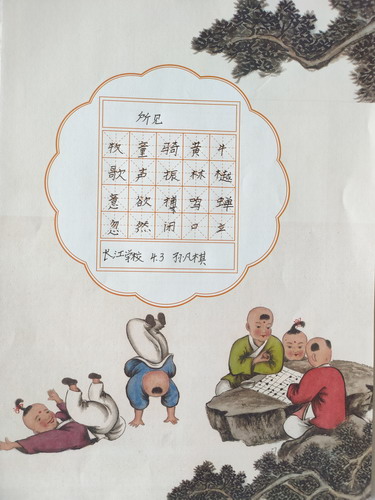 所见
牧童骑黄牛
歌声振林樾
意欲鸣蝉
忽然闭口立
长江学校 4.3 孙凡棋